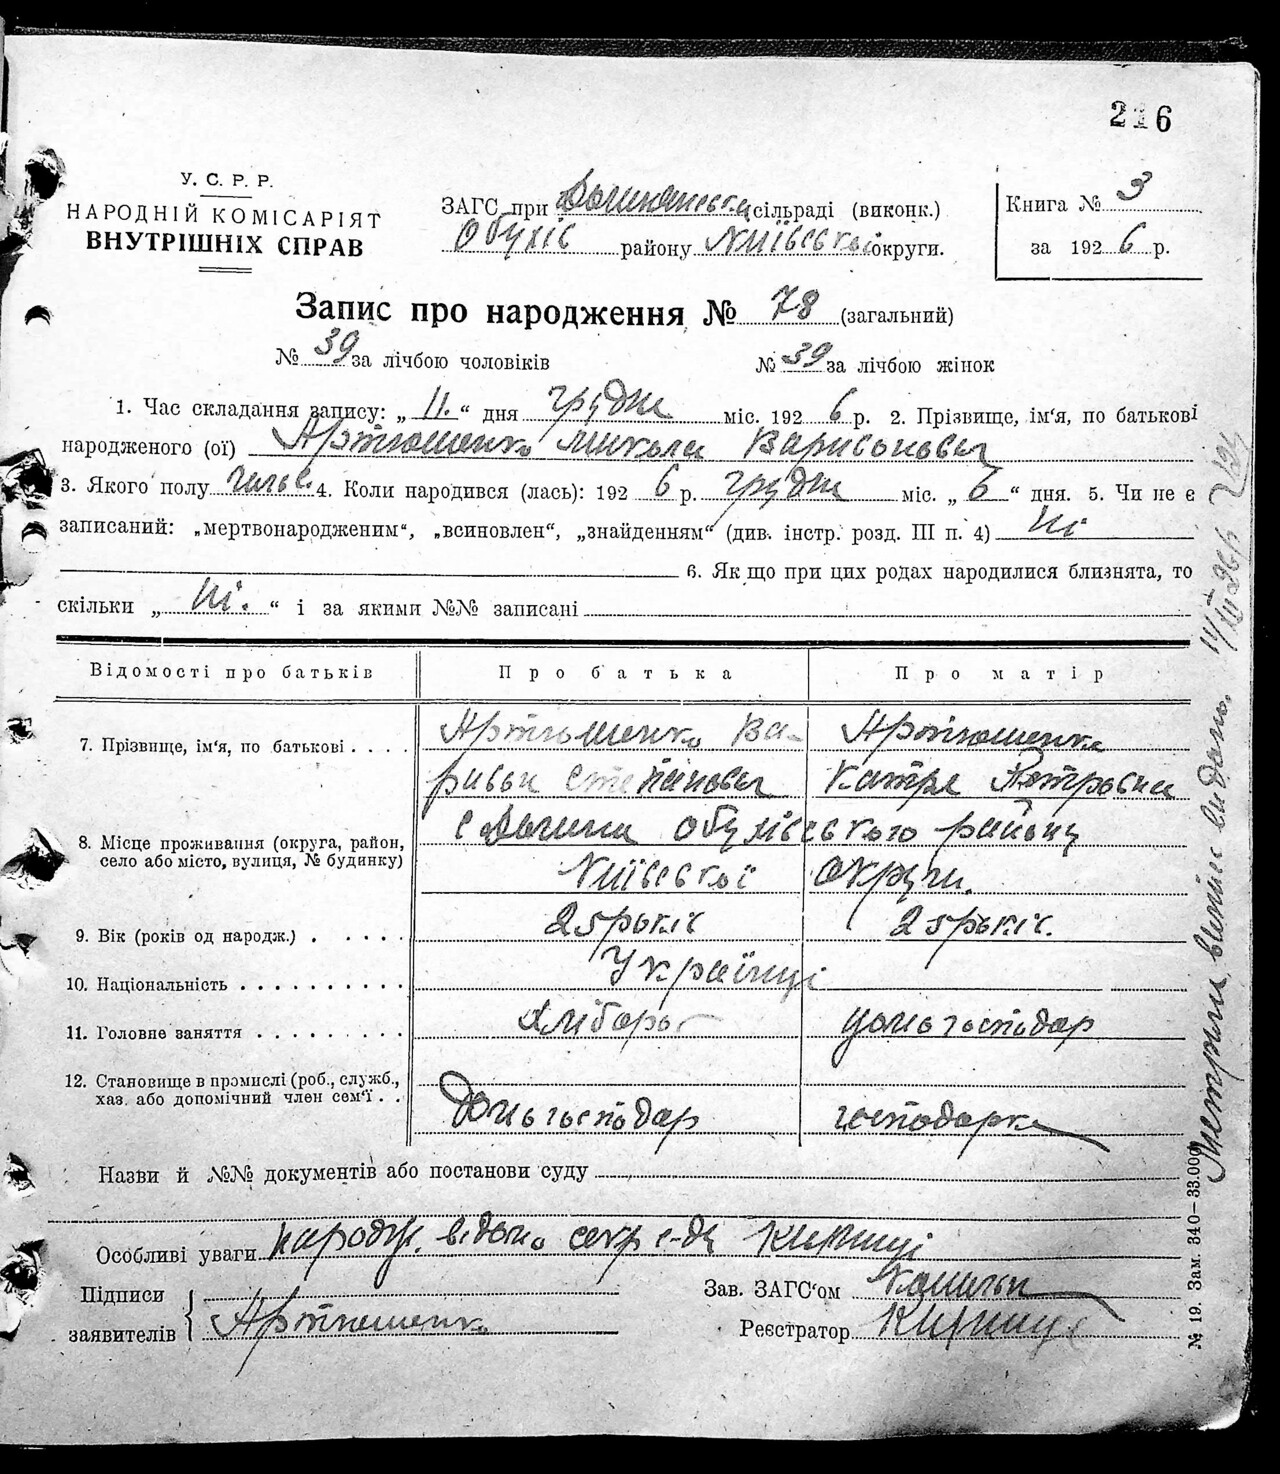 216
У. С. Р. Р.
НАРОДНІЙ КОМІСАРІЯТ
ВНУТРІШНІХ СПРАВ
ЗАГС при сільраді (виконк.)
Обухів району Київської округи.
Книга № 3
за 1926 р.
Запис про народження № 78 (загальний)
№ 39 за лічбою чоловіків № 39 за лічбою жінок
1. Час складання запису: „ 11. “ дня грудня міс. 1926 р. 2. Прізвище, ім'я, по батькові
народженого (ої) Артюшенко Микола
3. Якого полу 4. Коли народився (лась): 1926 р. грудня міс. „ 6 “ дня. 5. Чи не є
записаний: „мертвонародженим“, „всиновлен“, „знайденням“ (див. інстр. розд. III п. 4) Ні
6. Якщо при цих родах народилися близнята, то
скільки „ Ні. “ і за якими №№ записані
Відомості про батьків Про батька Про матір
7. Прізвище, ім'я, по батькові Артюшенко Ва- Артюшенко
Степанович Катря Петровна
8. Місце проживання (округа, район,
село або місто, вулиця, № будинку)
с Долина обухівського району
Київської округи.
9. Вік (років од народж.) 25 років 25 років.
10. Національність Українці
11. Головне заняття Хлібороб домогосподар
12. Становище в промислі (роб., служб.,
хаз. або допомічний член сем'ї
Домогосподар господарка
Назви й №№ документів або постанови суду
Особливі уваги народж. відомо секр с-ди
Підписи
заявителів Артюшенко
Зав. ЗАГС'ом
Реєстратор
№ 19. Зам. 340—33.000